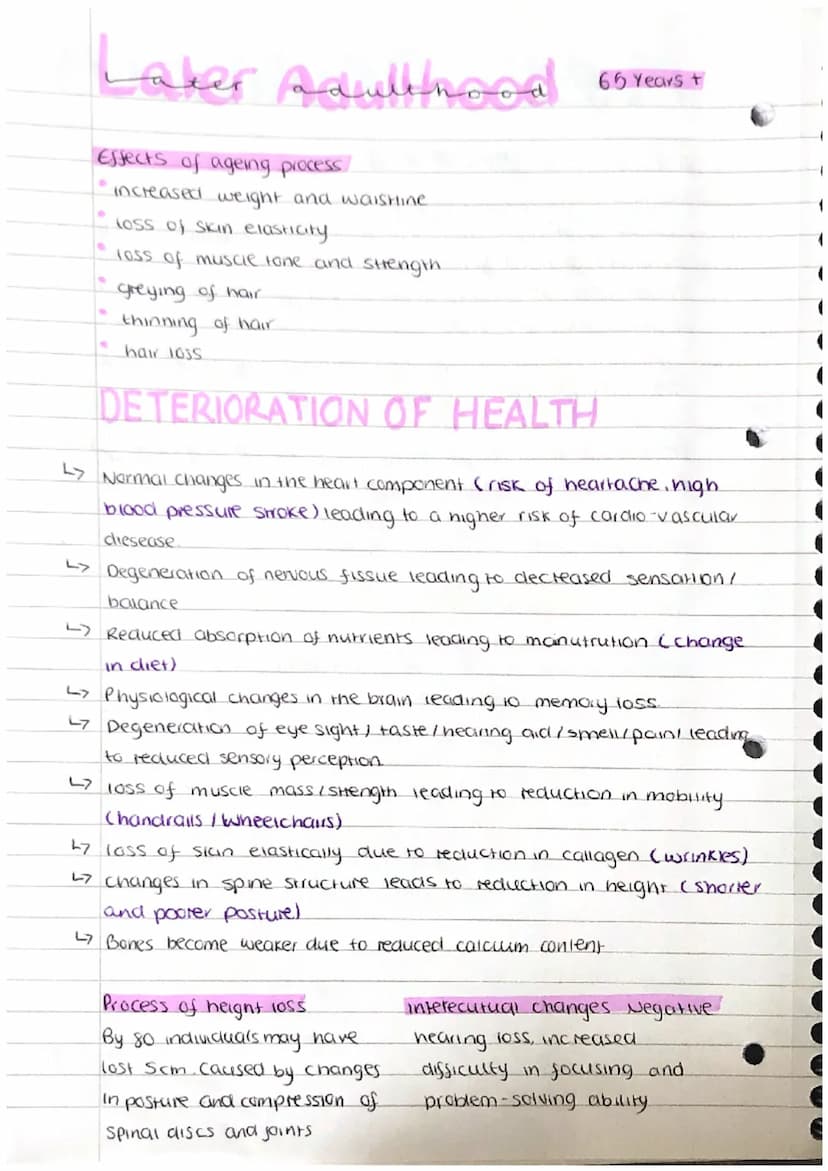 Later Adulthood 65 Years +
Effects of ageing process
• increased weight and waistline
• loss of skin elasticity
• loss of muscle tone and strength
• greying of hair
• thinning of hair
• hair loss
DETERIORATION OF HEALTH
↳ Normal changes in the heart component (risk of heartache, high
blood pressure stroke) leading to a higher risk of cardio-vascular
diesease.
↳ Degeneration of nervous tissue leading to decreased sensation/
balance
↳ Reduced absorption of nutrients leading to malnutrution (change
in diet)
↳ Physiological changes in the brain leading to memory loss.
↳ Degeneration of eye sight/taste/hearing aid/smell/pain/leading
to reduced sensory perception
↳ loss of muscle mass/strength leading to reduction in mobility
(handrails/wheelchairs)
↳ loss of skin elastically due to reduction in callagen (wrinkles)
↳ changes in spine structure leads to reduction in height (shorter
and poorer posture)
↳ Bones become weaker due to reduced calcium content
Process of height loss
By 80 individuals may have
lost 5cm. Caused by changes
in posture and compression of
spinal discs and joints
Changes Negative
hearing loss, increased
difficulty in focusing and
problem-solving ability